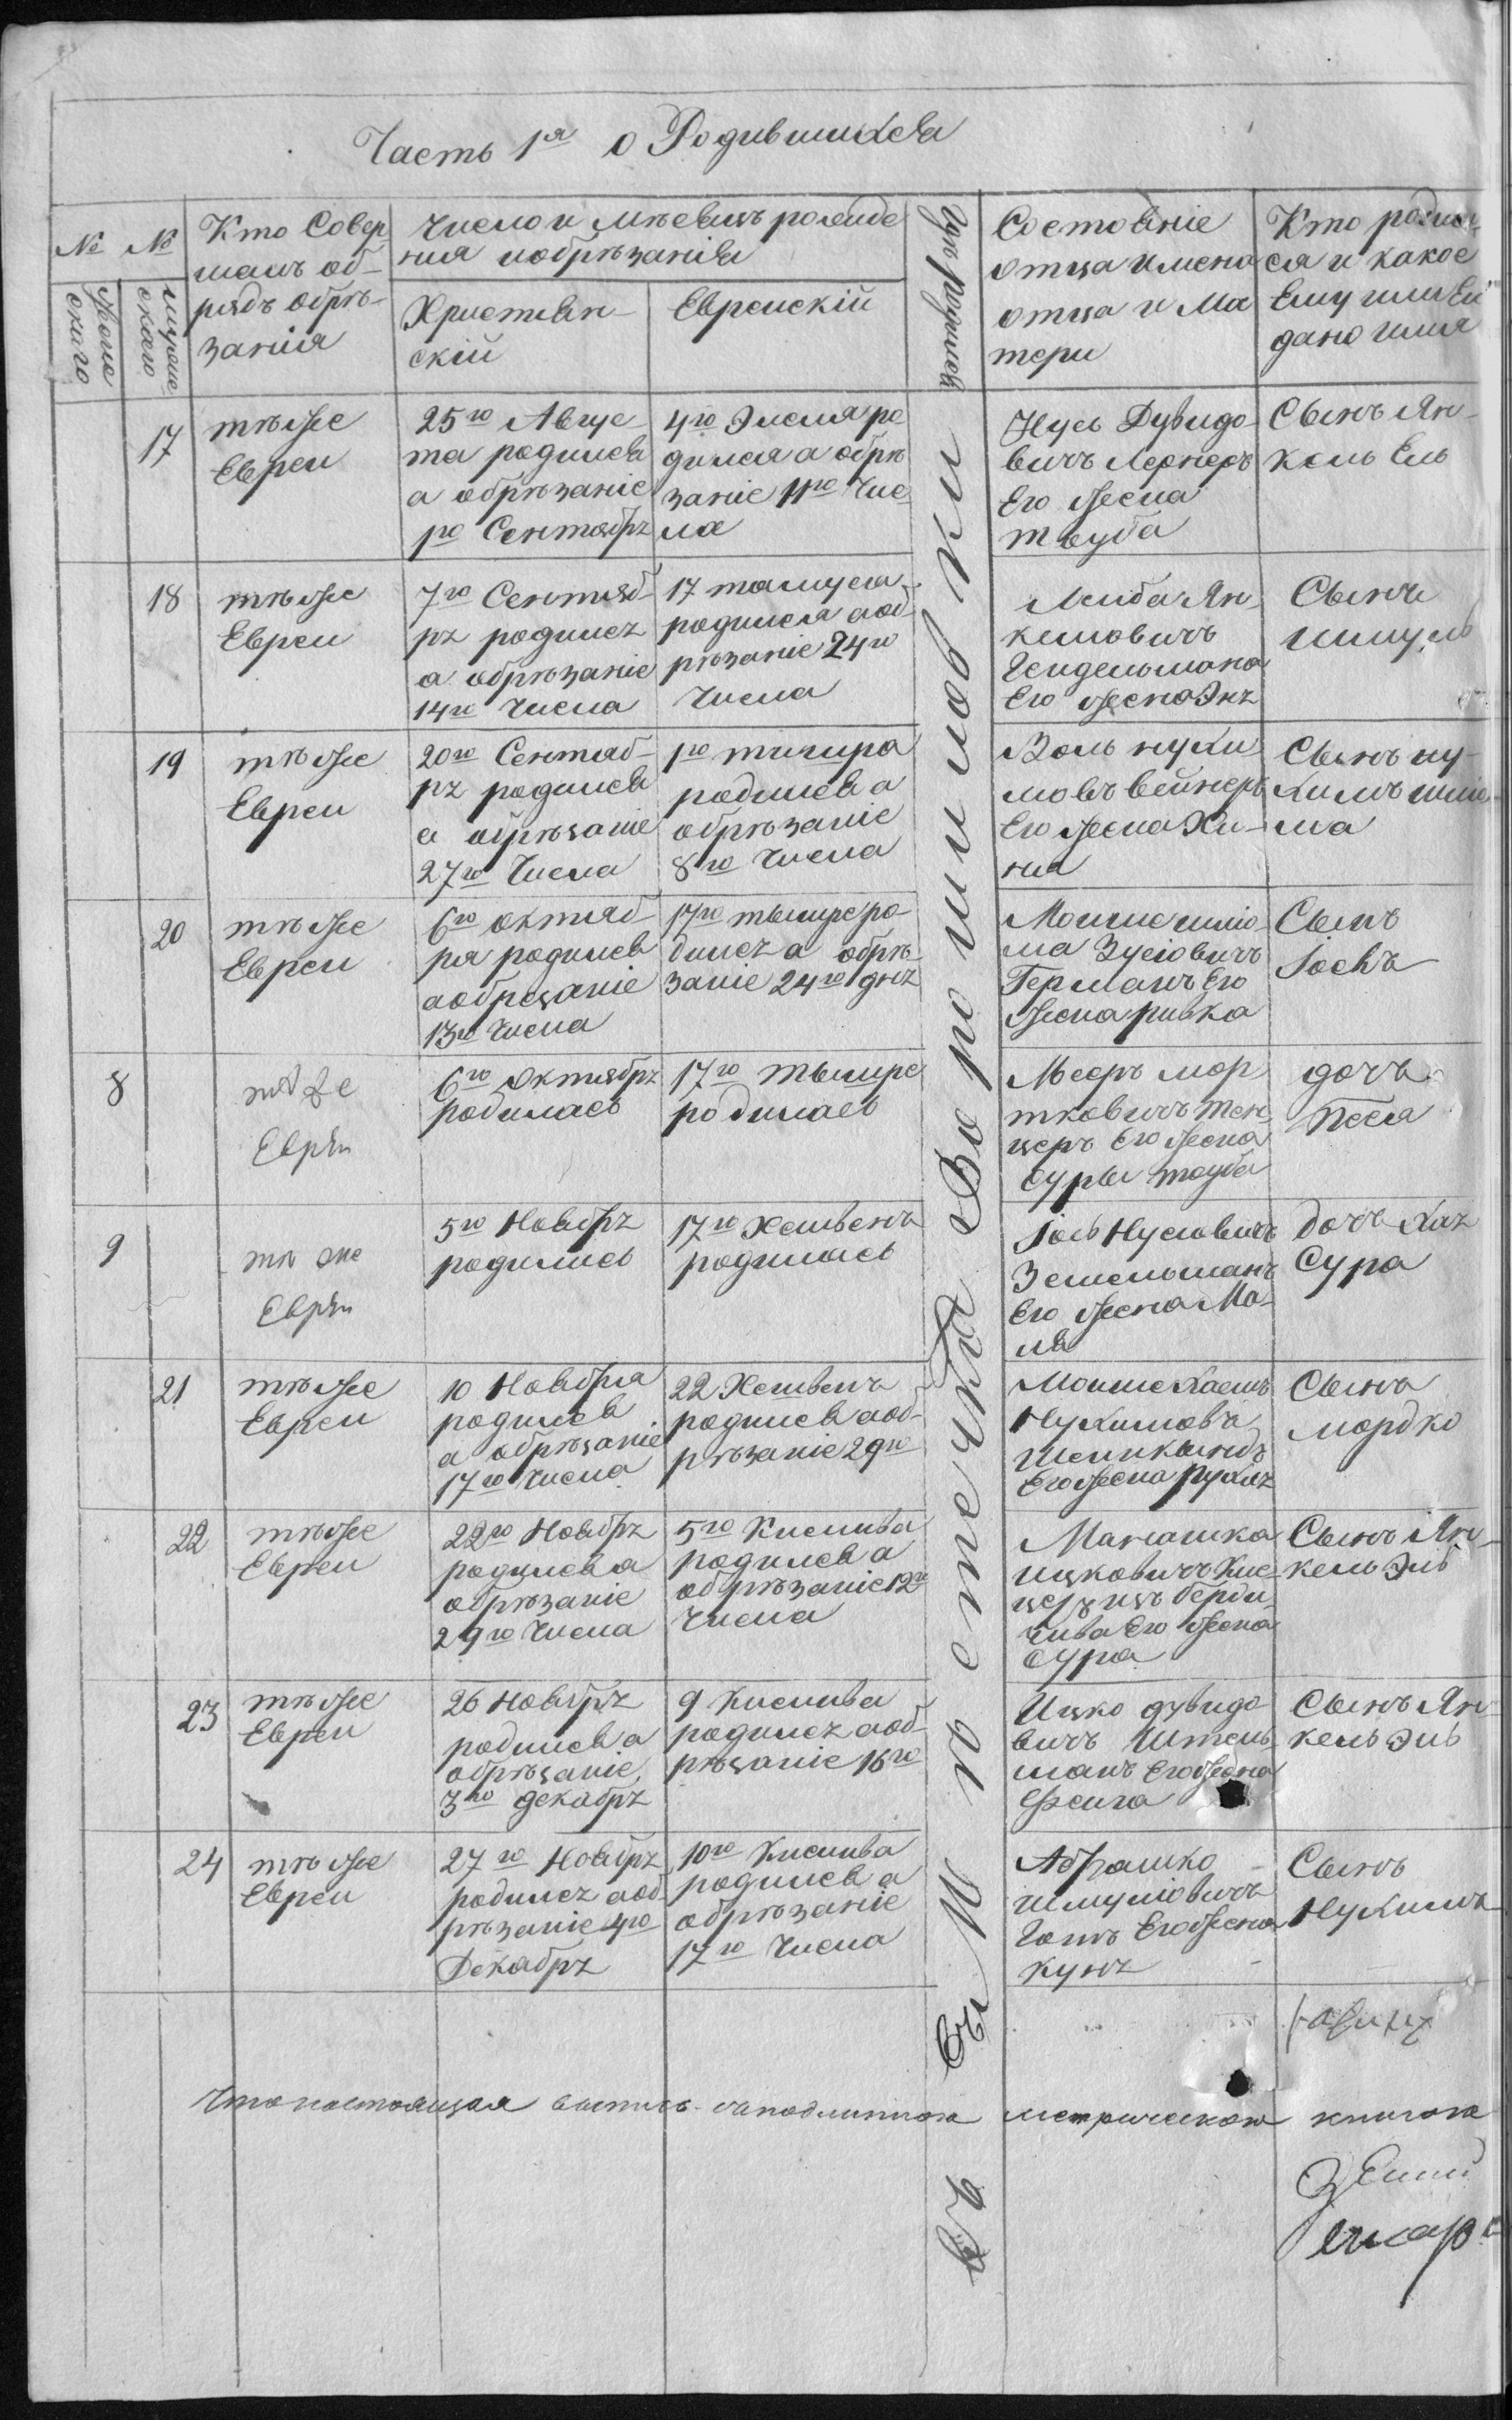 Часть 1я о Родившихся
№ №
женскаго
мужескаго
Кто Совер
шалъ об-
рядъ обрѣ-
занія
Число и мѣсецъ рожде
ния и обрѣзанія
Христиан-
скій
Еврейскій
Состояніе
отца имена
отца и Ма
тери
Кто родил
ся и какое
Ему или Ей
дано имя
17
тѣ же
Евреи
25го Авгус
та родился
а обрѣзаніе
1го Сентября
4го Элеля ро
дился а обрѣ
заніе 11го Чис
ла
Нусь Дувидо-
вичъ Лернеръ
Его жена
тауба
Сынъ Ян-
кель Ель
18
тѣ же
Евреи
7го Сентяб-
ря родился
а обрѣзаніе
14го Числа
17 тамуса
родился а об-
рѣзаніе 24го
Числа
Лейба Ян-
келовичъ
Гендельмана
Его жена Эня
Сынъ
шмуль
19
тѣ же
Евреи
20го Сентяб-
ря родился
а обрѣзаніе
27го Числа
1го тишра
родился а
обрѣзаніе
8го Числа
Воль нухи
мовъ вейнеръ
Его жена Хи-
ня
Сынъ ну-
химъ
20
тѣ же
Евреи
6го октяб
ря родился
а обрезаніе
13го Числа
17го тышре ро-
дился а обрѣ-
заніе 24го дня
Мошке шлио-
ма Зусіовичъ
Германъ Его
жена ривка
Сынъ
Іосъ
8
тѣ же
Еврѣи
6го Октября
родилась
17го тышре
родилась
Мееръ мор
тковичъ тен
церъ Его жена
Суры тауба
дочъ
песя
9
тѣ же
Еврѣи
5го Ноября
родилась
17го Хешвенъ
родилась
Іось Нусювичъ
Земельманъ
Его жена Ма-
ля
дочъ Хая
Сура
21
тѣ же
Евреи
10 Ноября
родился
а обрѣзаніе
17го Числа
22 Хешвенъ
родился а об-
рѣзаніе 29го
Мошке Хаемъ
Нухимовъ
Его жена рухля
Сынъ
мордко
22
тѣ же
Евреи
22го Ноября
родился а
обрѣзаніе
29го Числа
5го Кислива
родился а
обрѣзаніе 12го
Числа
Манашка
ицковичъ
изъ берди
чива Его жена
Сура
Сынъ Ян-
кель Эль
23
тѣ же
Евреи
26 Ноября
родился а
обрѣзаніе
3го декабря
9 Кислива
родился а об-
рѣзаніе 16го
Ицко дувидо
вичъ Штель
манъ Его жена
фейга
Сынъ Ян-
кель Эль
24
тѣ же
Евреи
27го Ноября
родился а об-
рѣзаніе 4го
Декабря
10го Кислива
родился а
обрѣзаніе
17го Числа
Абрашко
шмуліовичъ
Его жена
куня
Сынъ
Нухимъ
Въ местечка Ворошиловки
Что настоящая выпись съ подлинною метрическою книгою